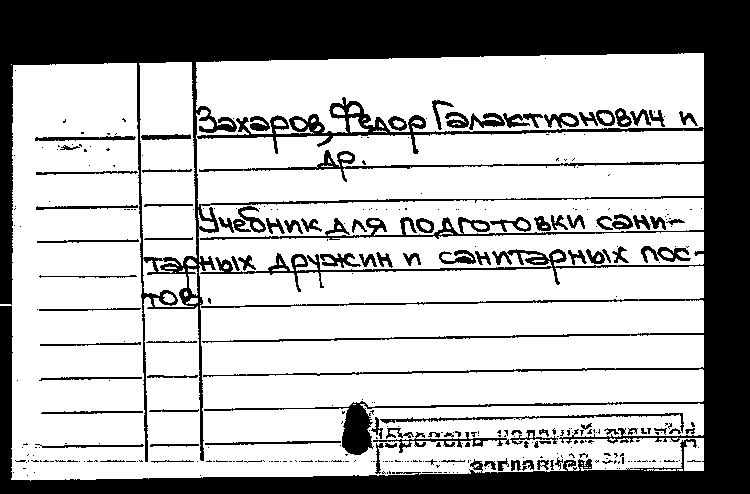 Захаров, Федор Галактионович и
др.
Учебник для подготовки сани-
тарных дружин и санитарных пос-
тов.
Перечень изданий см. под
заглавием